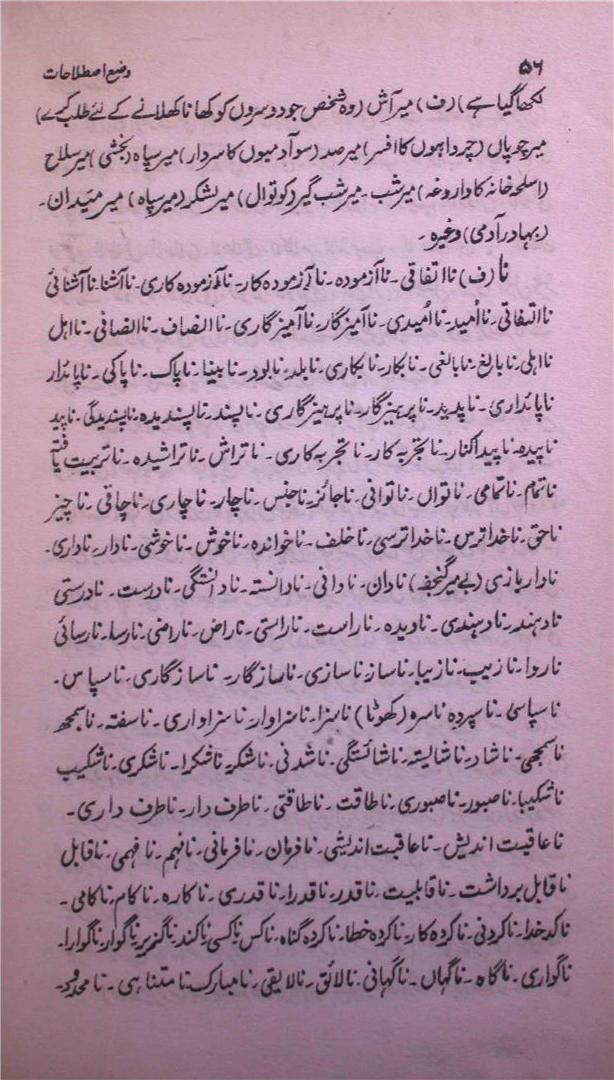 ۵۶ وضع اصطلاحات
لکھا گیا ہے) (ف) میر آش (وہ شخص جو دوسروں کو کھانا کھلانے کے لئے طلب کرے)
میر چوپاں (چرواہوں کا افسر) میر صد (سو آدمیوں کا سردار) میر سپاہ (بخشی) میر سلاح
(اسلحہ خانہ کا داروغہ) میر شب۔ میر شب گیر (کوتوال) میر لشکر (میر سپاہ) میر میدان۔
(بہادر آدمی) وغیرہ۔
نا (ف) نا اتفاقی۔ نا آزمودہ۔ نا آزمودہ کار۔ نا آزمودہ کاری۔ نا آشنا۔ نا آشنائی
نا التفاتی۔ نا اُمید۔ نا اُمیدی۔ نا آمیز گار۔ نا آمیز گاری۔ نا انصاف۔ نا انصافی۔ نا اہل
نا اہلی۔ نا بالغ۔ نا بالغی۔ نا بکار۔ نا بکاری۔ نا بلد۔ نا بود۔ نا بینا۔ نا پاک۔ نا پاکی۔ نا پائدار
نا پائداری۔ نا پدید۔ نا پرہیز گار۔ نا پرہیز گاری۔ نا پسند۔ نا پسندیدہ۔ نا پسندیدگی۔ نا پید
ناپیدہ۔ نا پیدا کنار۔ نا تجربہ کار۔ نا تجربہ کاری۔ نا تراش۔ نا تراشیدہ۔ نا تربیت یافتہ
نا تمام۔ نا تمامی۔ نا تواں۔ نا توانی۔ نا جائز۔ نا جنس۔ نا چار۔ نا چاری۔ نا چاقی۔ نا چیز
نا حق۔ نا خدا ترس۔ نا خدا ترسی۔ نا خلف۔ نا خواندہ۔ نا خوش۔ نا خوشی۔ نادار۔ ناداری۔
نادار بازی (بے میر گنجفہ) نادان۔ نادانی۔ نا دانستہ۔ نا دانستگی۔ نا درست۔ نا درستی
نا دہند۔ نا دہندی۔ نا دیدہ۔ نا راست۔ نا راستی۔ نا راض۔ نا راضی۔ نا رسا۔ نا رسائی
نا روا۔ نا زیب۔ نا زیبا۔ نا ساز۔ نا سازی۔ نا ساز گار۔ نا ساز گاری۔ نا سپاس۔
نا سپاسی۔ نا سپردہ۔ نا سرہ (کھوٹا) نا سزا۔ نا سزاوار۔ نا سزاواری۔ نا سفتہ۔ نا سمجھ
نا سمجھی۔ نا شاد۔ نا شایستہ۔ نا شائستگی۔ نا شدنی۔ نا شکر۔ نا شکرا۔ نا شکری۔ نا شکیب
نا شکیبا۔ نا صبور۔ نا صبوری۔ نا طاقت۔ نا طاقتی۔ نا طرف دار۔ نا طرف داری۔
نا عاقبت اندیش۔ نا عاقبت اندیشی۔ نا فرمان۔ نا فرمانی۔ نا فہم۔ نا فہمی۔ نا قابل
نا قابل برداشت۔ نا قابلیت۔ نا قدر۔ نا قدرا۔ نا قدری۔ نا کارہ۔ نا کام۔ نا کامی۔
نا کدخدا۔ نا کردنی۔ نا کردہ کار۔ نا کردہ خطا۔ نا کردہ گناہ۔ نا کس۔ نا کسی۔ نا کند۔ نا گزیر۔ نا گوار۔ نا گوارا۔
نا گواری۔ نا گاہ۔ نا گہاں۔ نا گہانی۔ نا لائق۔ نا لایقی۔ نا مبارک۔ نا متناہی۔ نا محدود۔